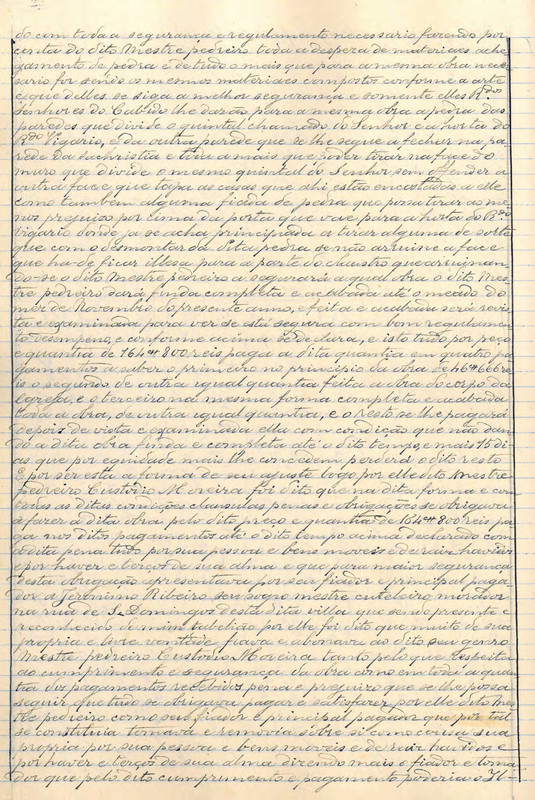 do com toda a segurança e regulamento necessario fazendo por
conta do dito Mestre pedreiro toda a despeza de materiaes ache
gamento de pedra e de tudo o mais que para a mesma obra neces
sario for sendo os mesmos materiaes compostos conforme a arte
e que delles se siga a melhor segurança e somente elles R.dos
Senhores do Cabido lhe darão para a mesma obra a pedra das
paredes que divide o quintal chamado do Senhor e a horta do
R.do Vigario, e da outra parede que se lhe segue a fechar na pa
rede da sachristia e tirá a mais que poder tirar na face do
muro que divide o mesmo quintal do Senhor sem offender a
outra face que tapa as casas que ahi estão encostadas a elle
como tambem alguma fiada de pedra que possa tirar ao me
nos prejuiso por cima da porta que vae para a horta do R.do
Vigario donde ja se acha principiada a tirar alguma de sorte
que com o desmontar da dita pedra se não arruine a face
que ha-de ficar illesa para a parte do claustro que arruinan
do-se o dito Mestre pedreiro a segurará a qual obra o dito Mes-
tre pedreiro dará finda completa e acabada até o meado do
mez de Novembro do presente anno, e feita e acabada será revis
ta e examinada para ver se está segura com bom regulamen
to desempeno, e conforme acima se declara, e isto tudo por preço
e quantia de 164# 800 reis paga a dita quantia em quatro pa
gamentos a saber o primeiro no principio da obra de 46#666 re
is o segundo de outra igual quantia feita a obra do corpo da
Egreja, e o terceiro na mesma forma completa e acabada
toda a obra, de outra igual quantia, e o resto se lhe pagará
depois de vista e examinada ella com condição que não dan
do a dita obra finda e completa até o dito tempo, e mais 15 di
as que por equidade mais lhe concedem perderá o dito resto
E por ser esta a forma de seu ajuste logo por elle dito Mestre
pedreiro Custodio Moreira foi dito que na dita forma e com
todas as ditas condições clausulas penas e obrigações se obrigava
a fazer a dita obra pelo dito preço e quantia de 164# 800 reis pa
ga nos ditos pagamentos até o dito tempo acima declarado com
a dita pena tudo por sua pessoa e bens moveis e de raiz havidos
e por haver e terços de sua alma e que para maior segurança
desta obrigação apresentava por seu fiador e principal paga-
dor a Jeronimo Ribeiro seu sogro mestre cuteleiro morador
na rua de S. Domingos desta dita villa que sendo presente e
reconhecido de mim tabellião por elle foi dito que muito de sua
propria e livre vontade fiava e abonava ao dito seu genro
Mestre pedreiro Custodio Moreira tanto pelo que respeita
ao cumprimento e segurança da obra como em toda a quan
tia dos pagamentos recebidos pena e prejuizo que se lhe possa
seguir que tudo se obrigava pagar e satisfazer por elle dito mes
tre pedreiro como seu fiador e principal pagador que por tal
se constituia tomava e removia sobre si como cousa sua
propria por sua pessoa e bens moveis e de raiz havidos e
por haver e terços de sua alma dizendo mais o fiador e toma
dor que pelo dito cumprimento e pagamento poderia o Il-